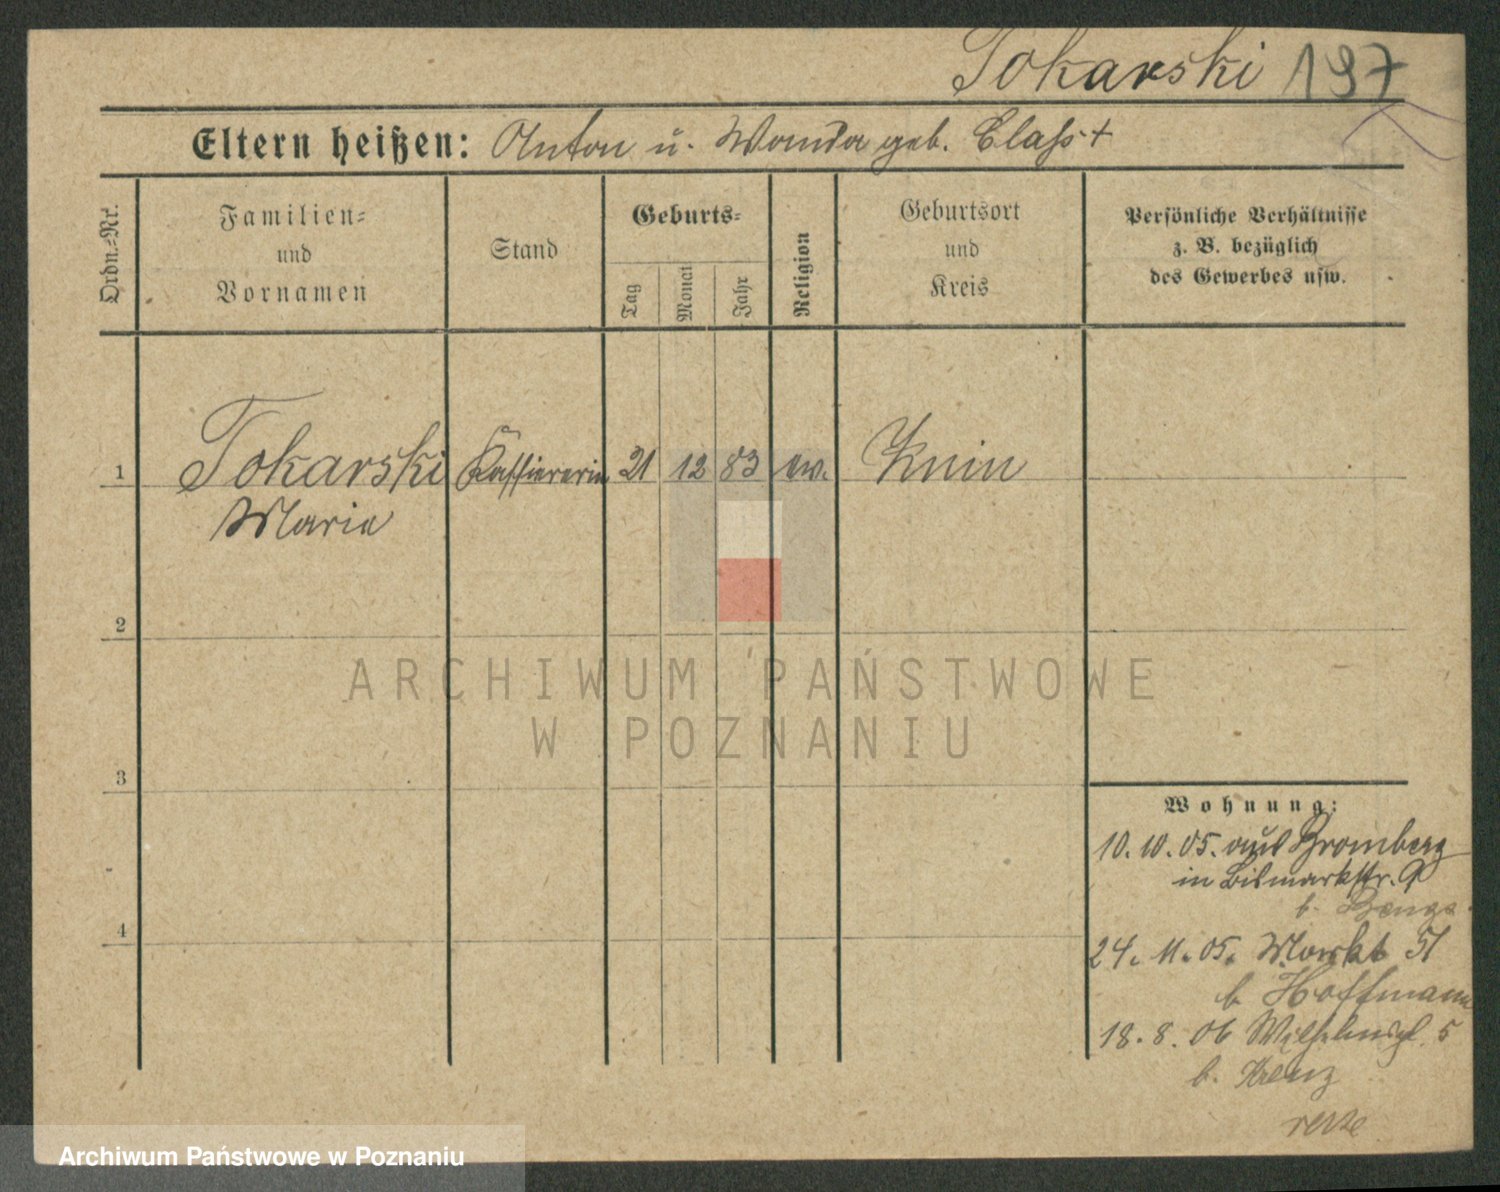 Tokarski 197
Eltern heißen: Anton u. Wanda geb. Claß +
Ordn.-Nr.
Familien-
und
Vornamen
Stand
Geburts-
Tag
Monat
Jahr
Religion
Geburtsort
und
Kreis
Persönliche Verhältnisse
z. B. bezüglich
des Gewerbes usw.
1 Tokarski Kassiererin 21 12 83 ev. Knin
Maria
2
3
4
Wohnung:
10. 10. 05. aus Bromberg
in Bismarkstr. 9
b.
24. 11. 05. Markt 51
b. Hoffmann
18. 8. 06 Wilhelmspl. 5
b.
ARCHIWUM PAŃSTWOWE
W POZNANIU
Archiwum Państwowe w Poznaniu